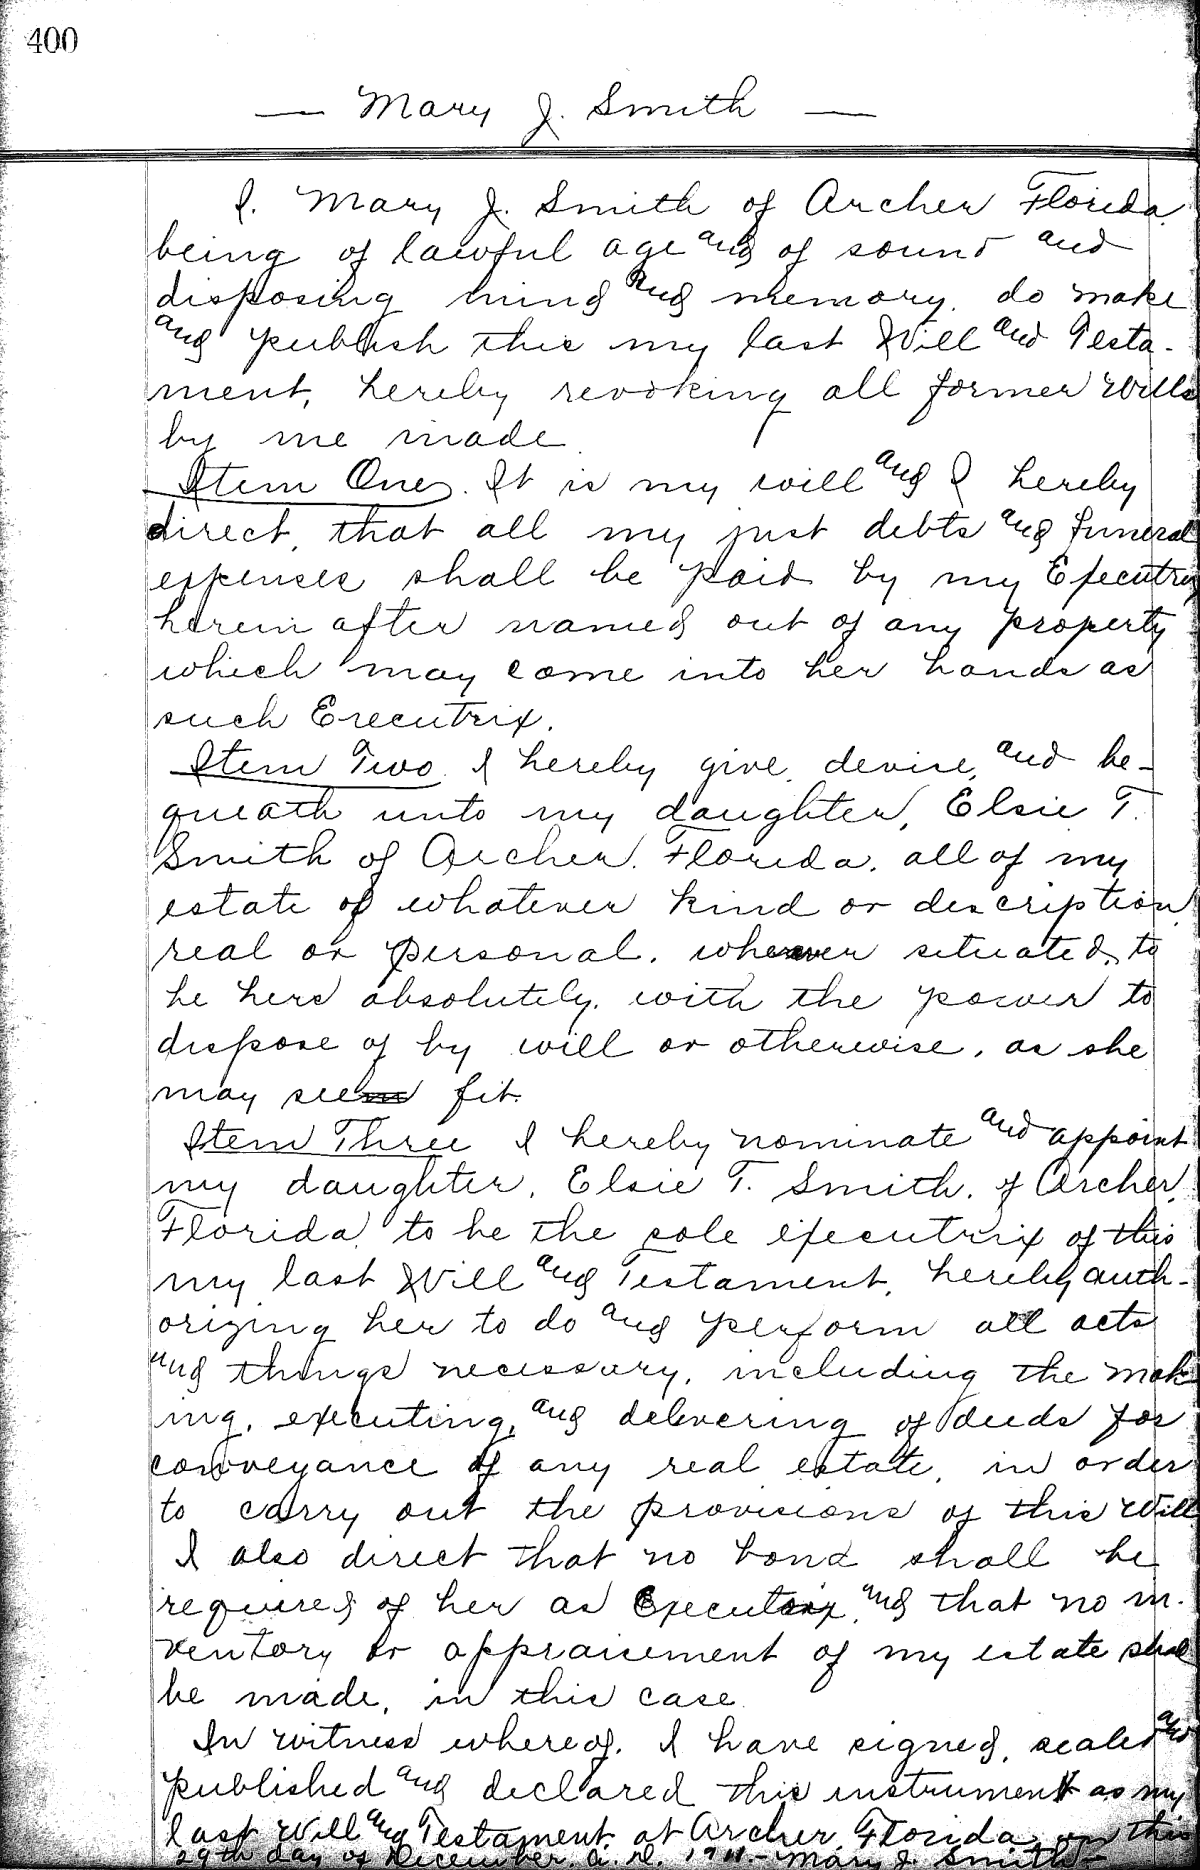 400
— Mary J. Smith —
I. Mary J. Smith of Archer Florida
being of lawful age and of sound and
disposing mind and memory. do make
and publish this my last Will and Testa-
ment, hereby revoking all former Wills
by me made
Item One. It is my will and I hereby
direct, that all my just debts and funeral
expenses shall be paid by my Executrix
herein after named out of any property
which may come into her hands as
such Executrix.
Item Two I hereby give, devise, and be-
queath unto my daughter, Elsie T.
Smith of Archer, Florida, all of my
estate of whatever kind or description,
real or personal, wherever situated, to
be hers absolutely, with the power to
dispose of by will or otherwise, as she
may see fit.
Item Three I hereby nominate and appoint
my daughter, Elsie T. Smith, of Archer,
Florida, to be the sole executrix of this
my last Will and Testament, hereby auth-
orizing her to do and perform all acts
and things necessary, including the mak
ing, executing, and delivering of deeds for
conveyance of any real estate, in order
to carry out the provisions of this Will
I also direct that no bond shall be
required of her as Executrix, and that no in-
ventory or appraisement of my estate shall
be made, in this case.
In witness whereof, I have signed, sealed and
published and declared this instrument as my
last Will and Testament at Archer, Florida, on this
29th day of December A. D. 1911.- Mary J. Smith-